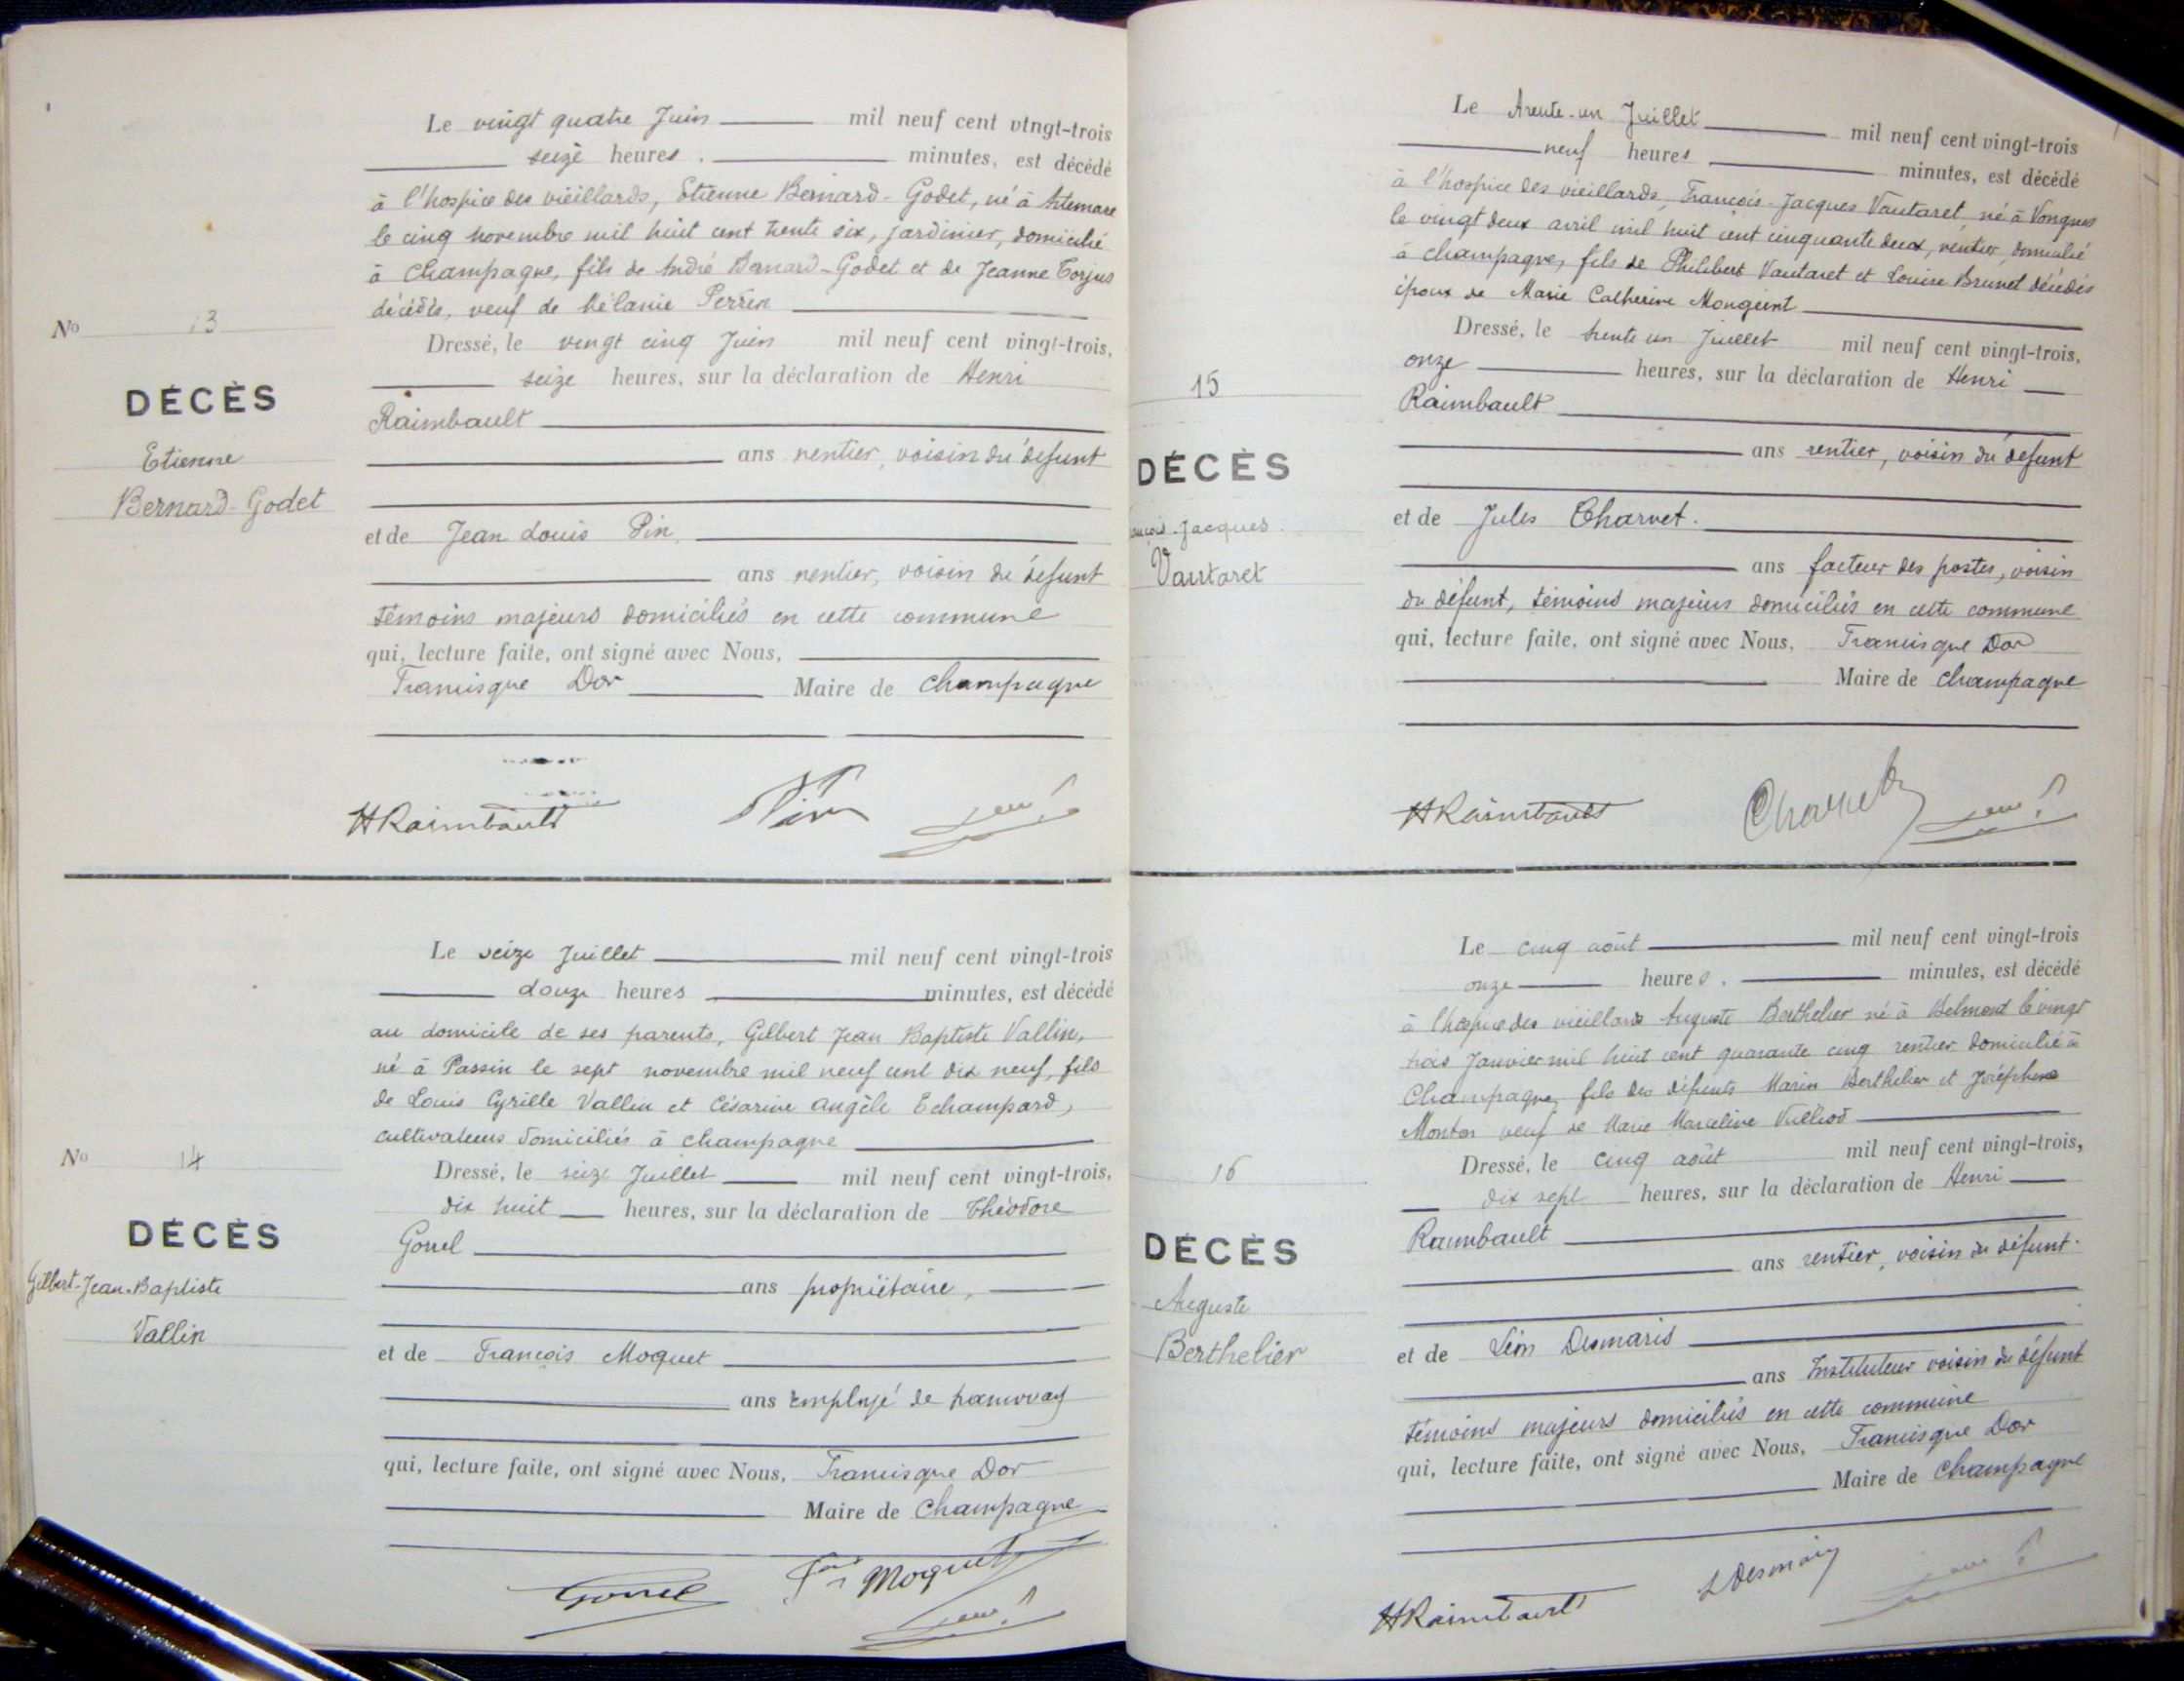 Le vingt quatre Juin mil neuf cent vingt-trois
seize heures. minutes, est décédé
à l'hospice des vieillards, Etienne Bernard-Godet, né à Artemare
le cinq novembre mil huit cent trente six, jardinier, domicilié
à Champagne, fils de André Bernard-Godet et de Jeanne Torjus
décédés, veuf de Mélanie Perrin
No 13
Dressé, le vingt cinq Juin mil neuf cent vingt-trois,
seize heures, sur la déclaration de Henri
DÉCÈS
Raimbault
Etienne
ans rentier, voisin du défunt
Bernard-Godet
et de Jean Louis Pin
ans rentier, voisin du défunt
témoins majeurs domiciliés en cette commune
qui, lecture faite, ont signé avec Nous,
Francisque Dor Maire de Champagne
HRaimbault Pin
Le seize Juillet mil neuf cent vingt-trois
douze heures minutes, est décédé
au domicile de ses parents, Gilbert Jean Baptiste Vallin,
né à Passin le sept novembre mil neuf cent dix neuf, fils
de Louis Cyrille Vallin et Césarine Angèle Echampard,
cultivateurs domiciliés à Champagne
No 14
Dressé, le seize Juillet mil neuf cent vingt-trois,
dix huit heures, sur la déclaration de Théodore
DÉCÈS
Gonel
Gilbert-Jean-Baptiste
ans propriétaire,
Vallin
et de François Moquet
ans Employé de tramway
qui, lecture faite, ont signé avec Nous, Francisque Dor
Maire de Champagne
Gonel Moquet
Le trente-un Juillet mil neuf cent vingt-trois
neuf heures minutes, est décédé
à l'hospice des vieillards, François-Jacques Vautaret né à Vongnes
le vingt deux avril mil huit cent cinquante deux, rentier, domicilié
à Champagne, fils de Philibert Vautaret et Louise Brunet décédés
époux de Marie Catherine Mongeint
Dressé, le trente un Juillet mil neuf cent vingt-trois,
15
onze heures, sur la déclaration de Henri
Raimbault
DÉCÈS
ans rentier, voisin du défunt
ançois-Jacques
et de Jules Charvet.
Vautaret
ans facteur des postes, voisin
du défunt, témoins majeurs domiciliés en cette commune
qui, lecture faite, ont signé avec Nous, Francisque Dor
Maire de Champagne
HRaimbault Charvet
Le cinq août mil neuf cent vingt-trois
onze heures. minutes, est décédé
à l'hospice des vieillards Auguste Berthelier né à Belmont le vingt
trois Janvier mil huit cent quarante cinq rentier domicilié à
Champagne, fils des défunts Marin Berthelier et Joséphine
veuf de Marie Marceline
16
Dressé, le cinq août mil neuf cent vingt-trois,
dix sept heures, sur la déclaration de Henri
DÉCÈS
Raimbault
ans rentier, voisin du défunt.
Auguste
Berthelier
et de Léon Desmaris
ans Instituteur voisin du défunt
témoins majeurs domiciliés en cette commune
qui, lecture faite, ont signé avec Nous, Francisque Dor
Maire de Champagne
HRaimbault LDesmaris